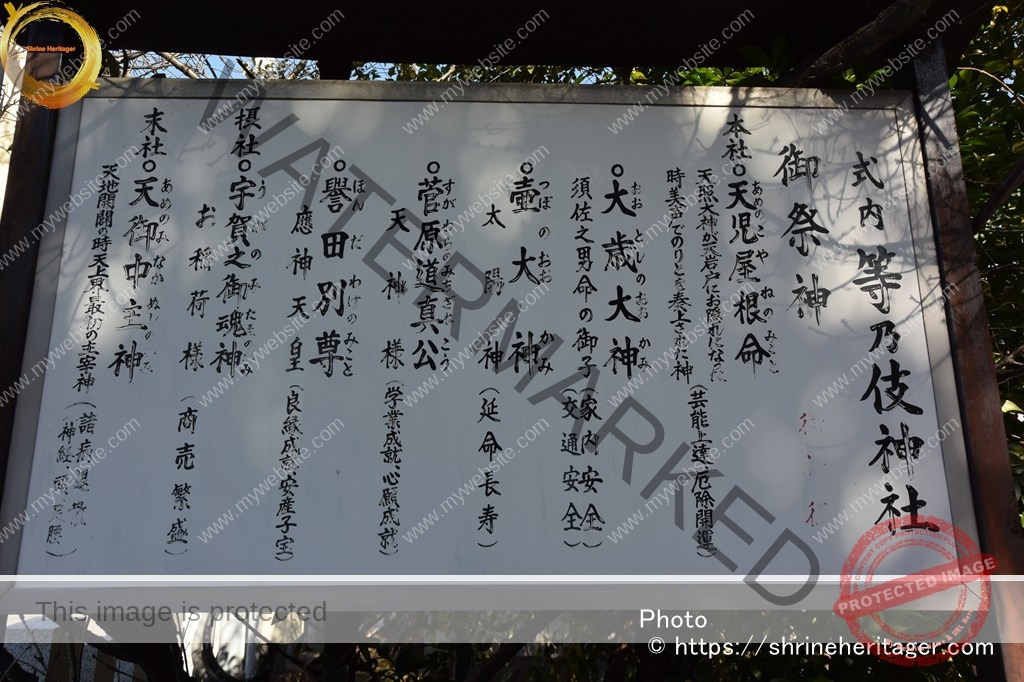 式内 等乃伎神社
御祭神
本社
天児屋根命
あめのこやねのみこと
天照大神が天岩戸にお隠れになった
時美声でのりとを奏上された神
(芸能上達、厄除開運)
大歳大神
おおとしのおおかみ
須佐之男命の御子
(家内安全)
(交通安全)
壷大神
つぼのおおかみ
太陽神
(延命長寿)
菅原道真公
すがわらのみちざねこう
天神様
(学業成就、心願成就)
誉田別尊
ほんだわけのみこと
應神天皇
(良縁成就、安産子宝)
摂社
宇賀之御魂神
うがのみたまのかみ
お稲荷様
(商売繁盛)
末社
天御中主神
あめのみなかぬしの
天地開闢の時天上界最初の主宰神
Shrine Heritager
WATERMARKED
www.mywebsite.com
PROTECTED IMAGE
This image is protected
Photo
© https://shrineheritager.com